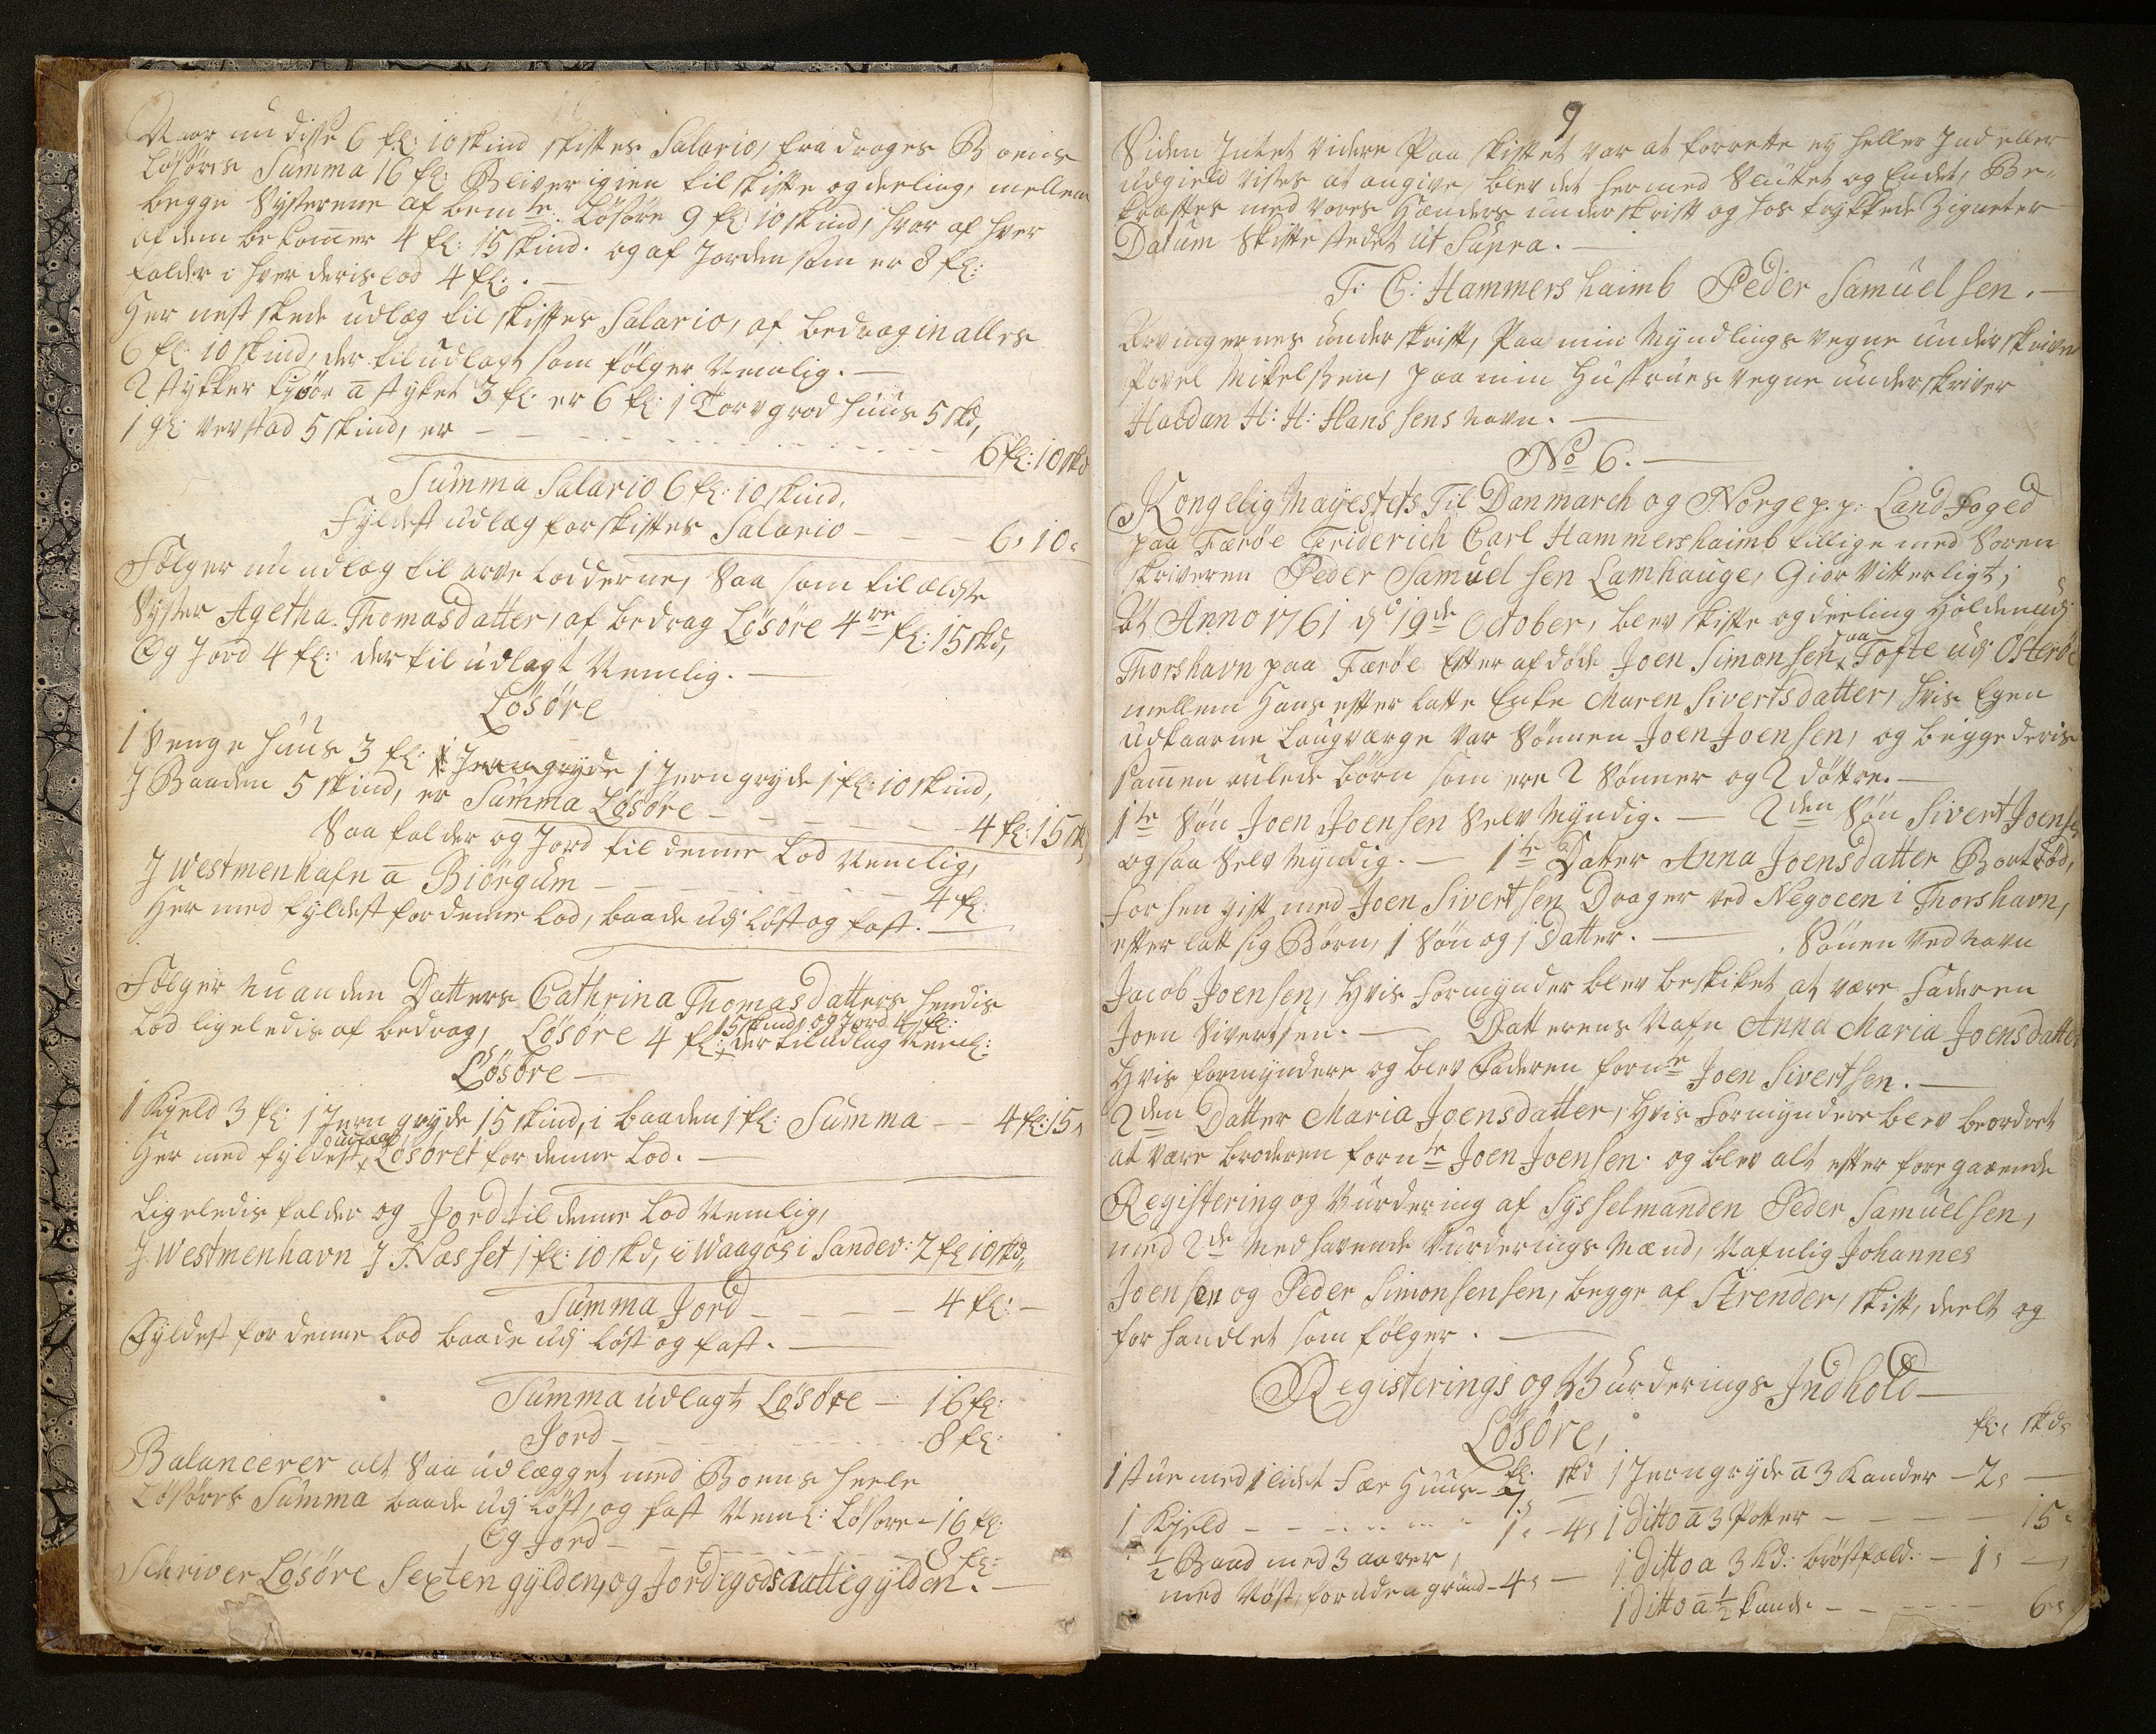 Naar nu disse 6 fl: 10 skind skiftes Salario, fra drages Boens
Løsøris Summa 16 fl: Bliver igien til skifte og deeling, mellem
begge Systerene af bemte Løsøre 9 fl: 10 skind, hvor af hver
af dem bekomer 4 fl: 15 skind. og af Jorden som er 8 fl:
falder i hver deris lod 4 fl:. —
Her nest skede udlæg til skiftes Salario, af bedrag in alles
6 fl: 10 skind, der til udlagt som følger Nemlig. —
2 stykker kjøør a styket 3 fl: er 6 fl: 1 Torvgrod huus 5 skd,
1 gl: verstad 5 skind, er — — — — — 6 fl: 10 skd
Summa Salario 6 fl: 10 skind.
Fyldest udlæg for skiftes Salario — — — 6, 10,
Følger nu udlæg til arve lodderne, Saa som til ældste
Syster Agetha Thomasdatter, af bedrag Løsøre 4re fl: 15 skd,
Og Jord 4 fl: der til udlagt Nemlig. —
Løsøre
1 Senge huus 3 fl: 1 Jerngryde 1 Jerngryde 1 fl: 10 skind,
J Baaden 5 skind, er Summa Løsøre — — — — 4 fl: 15 sk,
Saa falder og Jord til denne Lod Nemlig,
J Westmenhafn a Biørgum — — — — 4 fl:
Her med fyldest for denne lod, baade udj løst og fast. —
Følger nu anden Datters Cathrina Thomasdatters hendis
15 skind, og Jord 4 fl:
Lod ligeledis af bedrag, Løsøre 4 fl: der til udlag Neml:
Løsøre —
1 Kyeld 3 fl: 1 Jern gryde 15 skind, i baaden 1 fl: Summa — — 4 fl: 15,
udlag
Her med fyldest Løsøret for denne Lod. —
Ligeledis falder og Jord til denne Lod Nemlig,
J Westmenhavn J Næsset 1 fl: 10 skd, i Waagøs i Sandev: 2 fl 10 skd,
Summa Jord — — — 4 fl: —
Fyldest for denne Lod baade udj løst og fast. —
Summa udlagt Løsøre — 16 fl:
Jord — — — — 8 fl:
Balanceerer alt Saa udlægget med Boens heele
Løsøres Summa baade udj løst, og fast Neml: Løsøre - 16 fl:
Og Jord — — — — 8 fl:
Schriver Løsøre Sexten gylden, og Jordegods aatte gylden. —
9
Siden Intet videre Paa skiftet var at forrette ey heller Ind eller
udgield vistes at angive, blev det hermed Sluttet og Endet, Be-
kræftes med vores Hænders underskrift og hos trykkede Zigneter
Datum Skifte stedet ut Supra. —
F: C: Hammershaimb Peder Samuelsen. —
Arvingernes underskrift, Paa min Myndlings vegne underskriver
Povel Mikelsen, paa min Hustrues vegne underskriver
Haldan H: H: Hanssens navn. —
No 6. —
Kongelig Mayestets Til Danmarch og Norge p. p: Land foged
paa Færøe Friderich Carl Hammershaimb tillige med Soren
skriveren Peder Samuelsen Lamhauge, Giør Vitterligt;
At Anno 1761 d: 19de October, blev skifte og deeling holden udj
paa
Thorshavn paa Færøe Efter afdøde Joen Simonsen Tofte udj Østerøe
mellem Hans efter latte Enke Maren Sivertsdatter, hvis Egen
udkaarne Laugværge var Sønnen Joen Joensen, og begge deris
samen aulede børn som ere 2 Sønner og 2 døttre. —
1te Søn Joen Joensen Selv Myndig. — 2den Søn Sivert Joensen
ogsaa Selv Myndig. — 1te Datter Anna Joensdatter Bortdød,
forhen gift med Joen Sivertsen Drager ved Negocen i Thorshavn,
efter latt sig Børn, 1 Søn og 1 Datter. — Sønen ved navn
Jacob Joensen, Hvis Formynder blev beskiket at være Faderen
Joen Sivertsen. — Datterens Nafn Anna Maria Joensdatter
Hvis formyndere og blev Faderen fornte Joen Sivertsen. —
2den Datter Maria Joensdatter, hvis Formyndere blev beordret
at være broderen fornte Joen Joensen. og blev alt efter foregaaende
Registering og Vurdering af Sysselmanden Peder Samuelsen,
med 2de medhavende Vurderings Mænd, Nafnlig Johannes
Joensen og Peder Simonsensen, begge af Strender, skift, deelt og
forhandlet som følger. —
Registerings og Vurderings Indhold —
Løsøre, fl: skd,
1 stue med 1 lidet Fæe Huus - fl: 7, skd 1 Jerngryde a 3 Kander — 2, —
1 Kyeld — — — — 1, - 4, 1 Ditto a 3 Potter — — — — 15,
1/2 Baad med 3 aarer, 1 Ditto a 3 Kd: brøstfald: — 1, —
med Nøst, foruden grund - 4, — 1 Ditto a 1/2 Kande — — — 6,